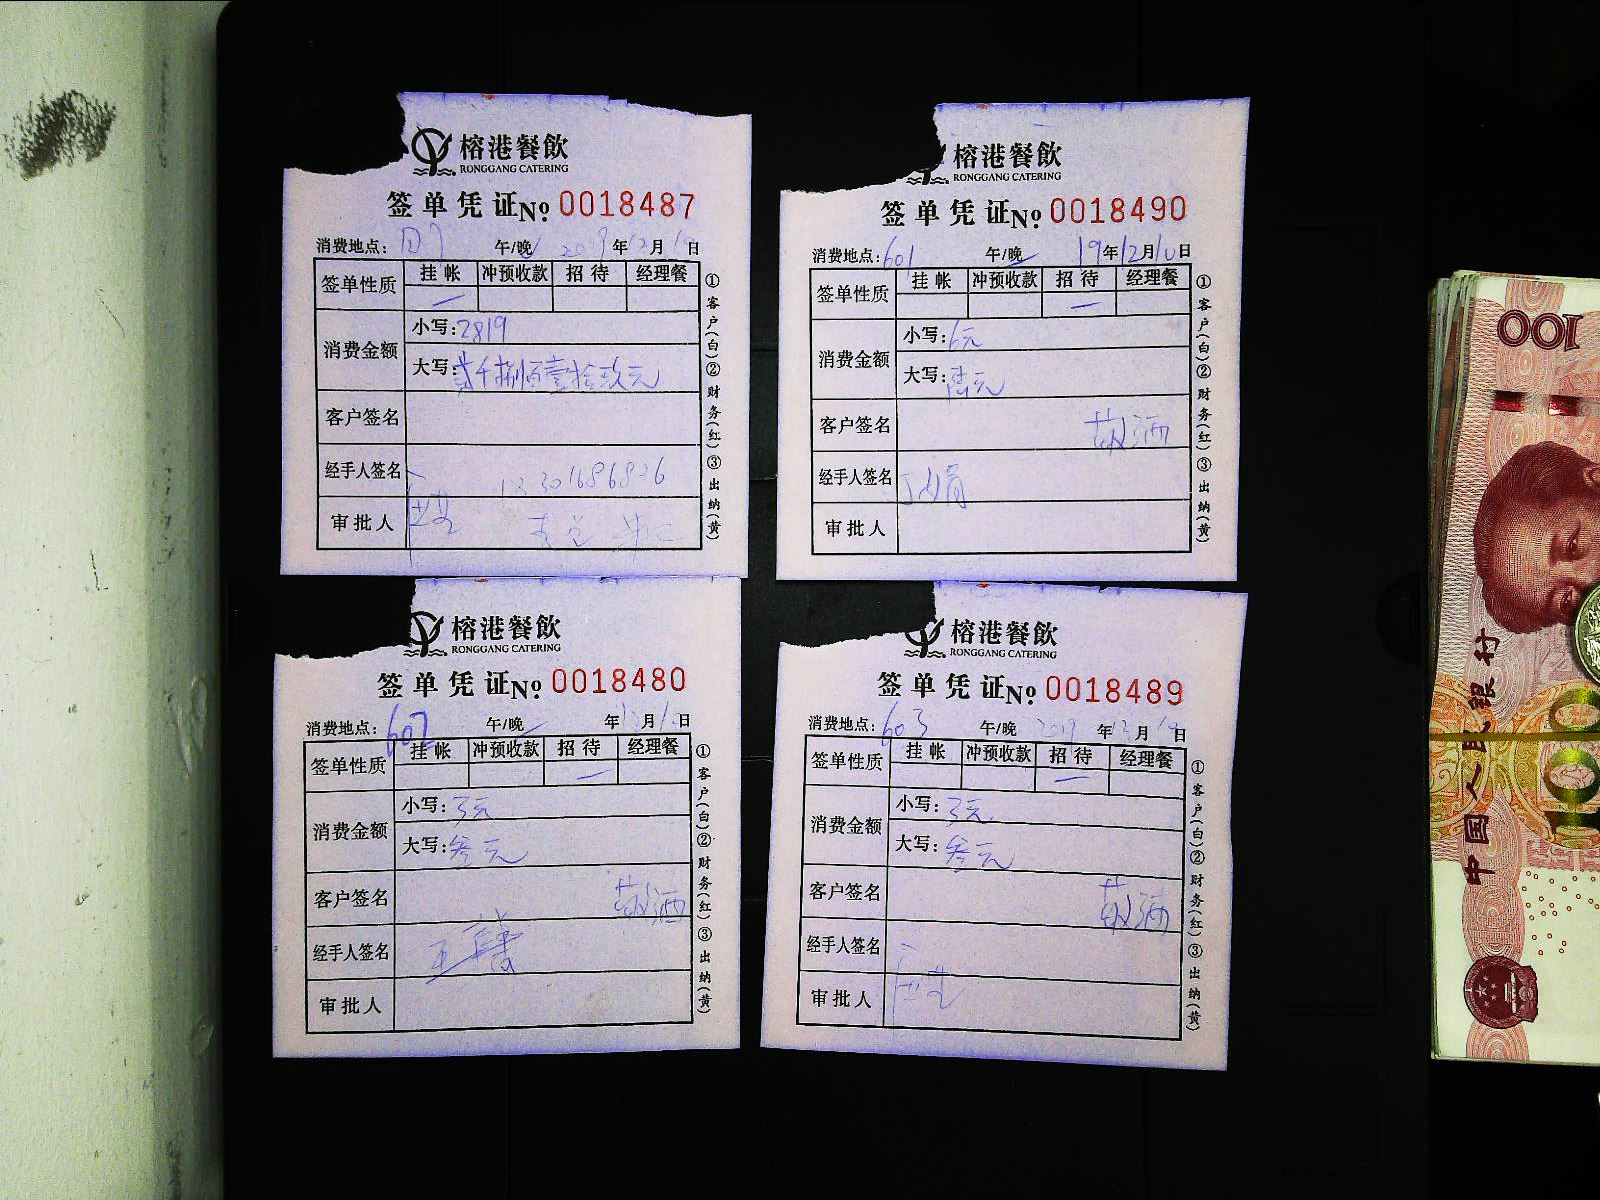 榕港餐飲
RONGGANG CATERING
签单凭证No 0018487
消费地点: 午/晚 2019年12月10日
签单性质 挂帐 冲预收款 招待 经理餐
消费金额 小写:2819
大写:贰仟捌佰壹拾玖元
客户签名
经手人签名
审批人
①客户(白)②财务(红)③出纳(黄)
榕港餐飲
RONGGANG CATERING
签单凭证No 0018490
消费地点:601 午/晚 19年12月10日
签单性质 挂帐 冲预收款 招待 经理餐
消费金额 小写:6元
大写:陆元
客户签名 敬酒
经手人签名
审批人
①客户(白)②财务(红)③出纳(黄)
榕港餐飲
RONGGANG CATERING
签单凭证No 0018480
消费地点:607 午/晚 年12月10日
签单性质 挂帐 冲预收款 招待 经理餐
消费金额 小写:3元
大写:叁元
客户签名 敬酒
经手人签名
审批人
①客户(白)②财务(红)③出纳(黄)
榕港餐飲
RONGGANG CATERING
签单凭证No 0018489
消费地点:603 午/晚 2019年12月10日
签单性质 挂帐 冲预收款 招待 经理餐
消费金额 小写:3元
大写:叁元
客户签名 敬酒
经手人签名
审批人
①客户(白)②财务(红)③出纳(黄)
100
中国人民银行
100